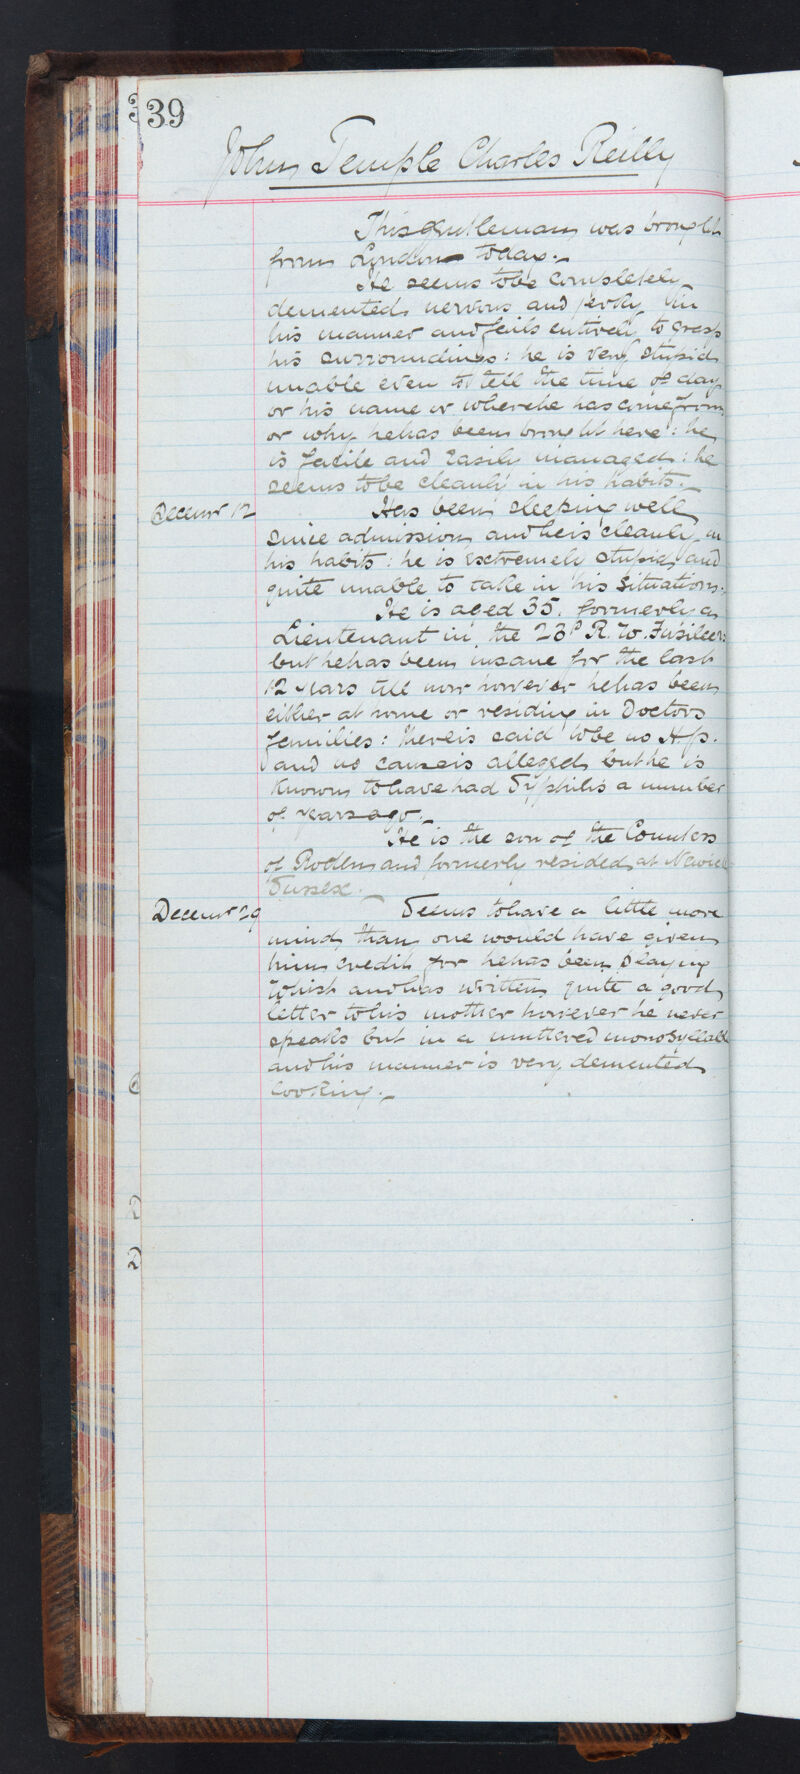 39
John Temple Charles Reilly
This gentleman was brought
from London today._
He seems to be completely
demented, nervous and jerky in
his manner and fails entirely to grasp
his surroundings: he is very stupid
unable even to tell the time of day
or his name or where he has come from
or why he has been brought here: he
is facile and easily managed: he
seems to be cleanly in his habits._
Decemr 12 Has been sleeping well
since admission and he is cleanly in
his habits: he is extremely stupid and
quite unable to take in his situation:
He is aged 35. formerly a
Lieutenant in the 23d R. W. Fusileers
but he has been insane for the last
12 years till now however he has been
either at home or residing in Doctors
families: there is said to be no H.p.
and no cause is alleged, but he is
known to have had Syphilis a number
of years ago._
He is the son of the Countess
of Roden and formerly resided at
Sussex._
Decemr 29 Seems to have a little more
mind than one would have given
him credit for he has been playing
whist and has written quite a good
letter to his mother however he never
speaks but in a muttered monosyllable
and his manner is very demented
looking._